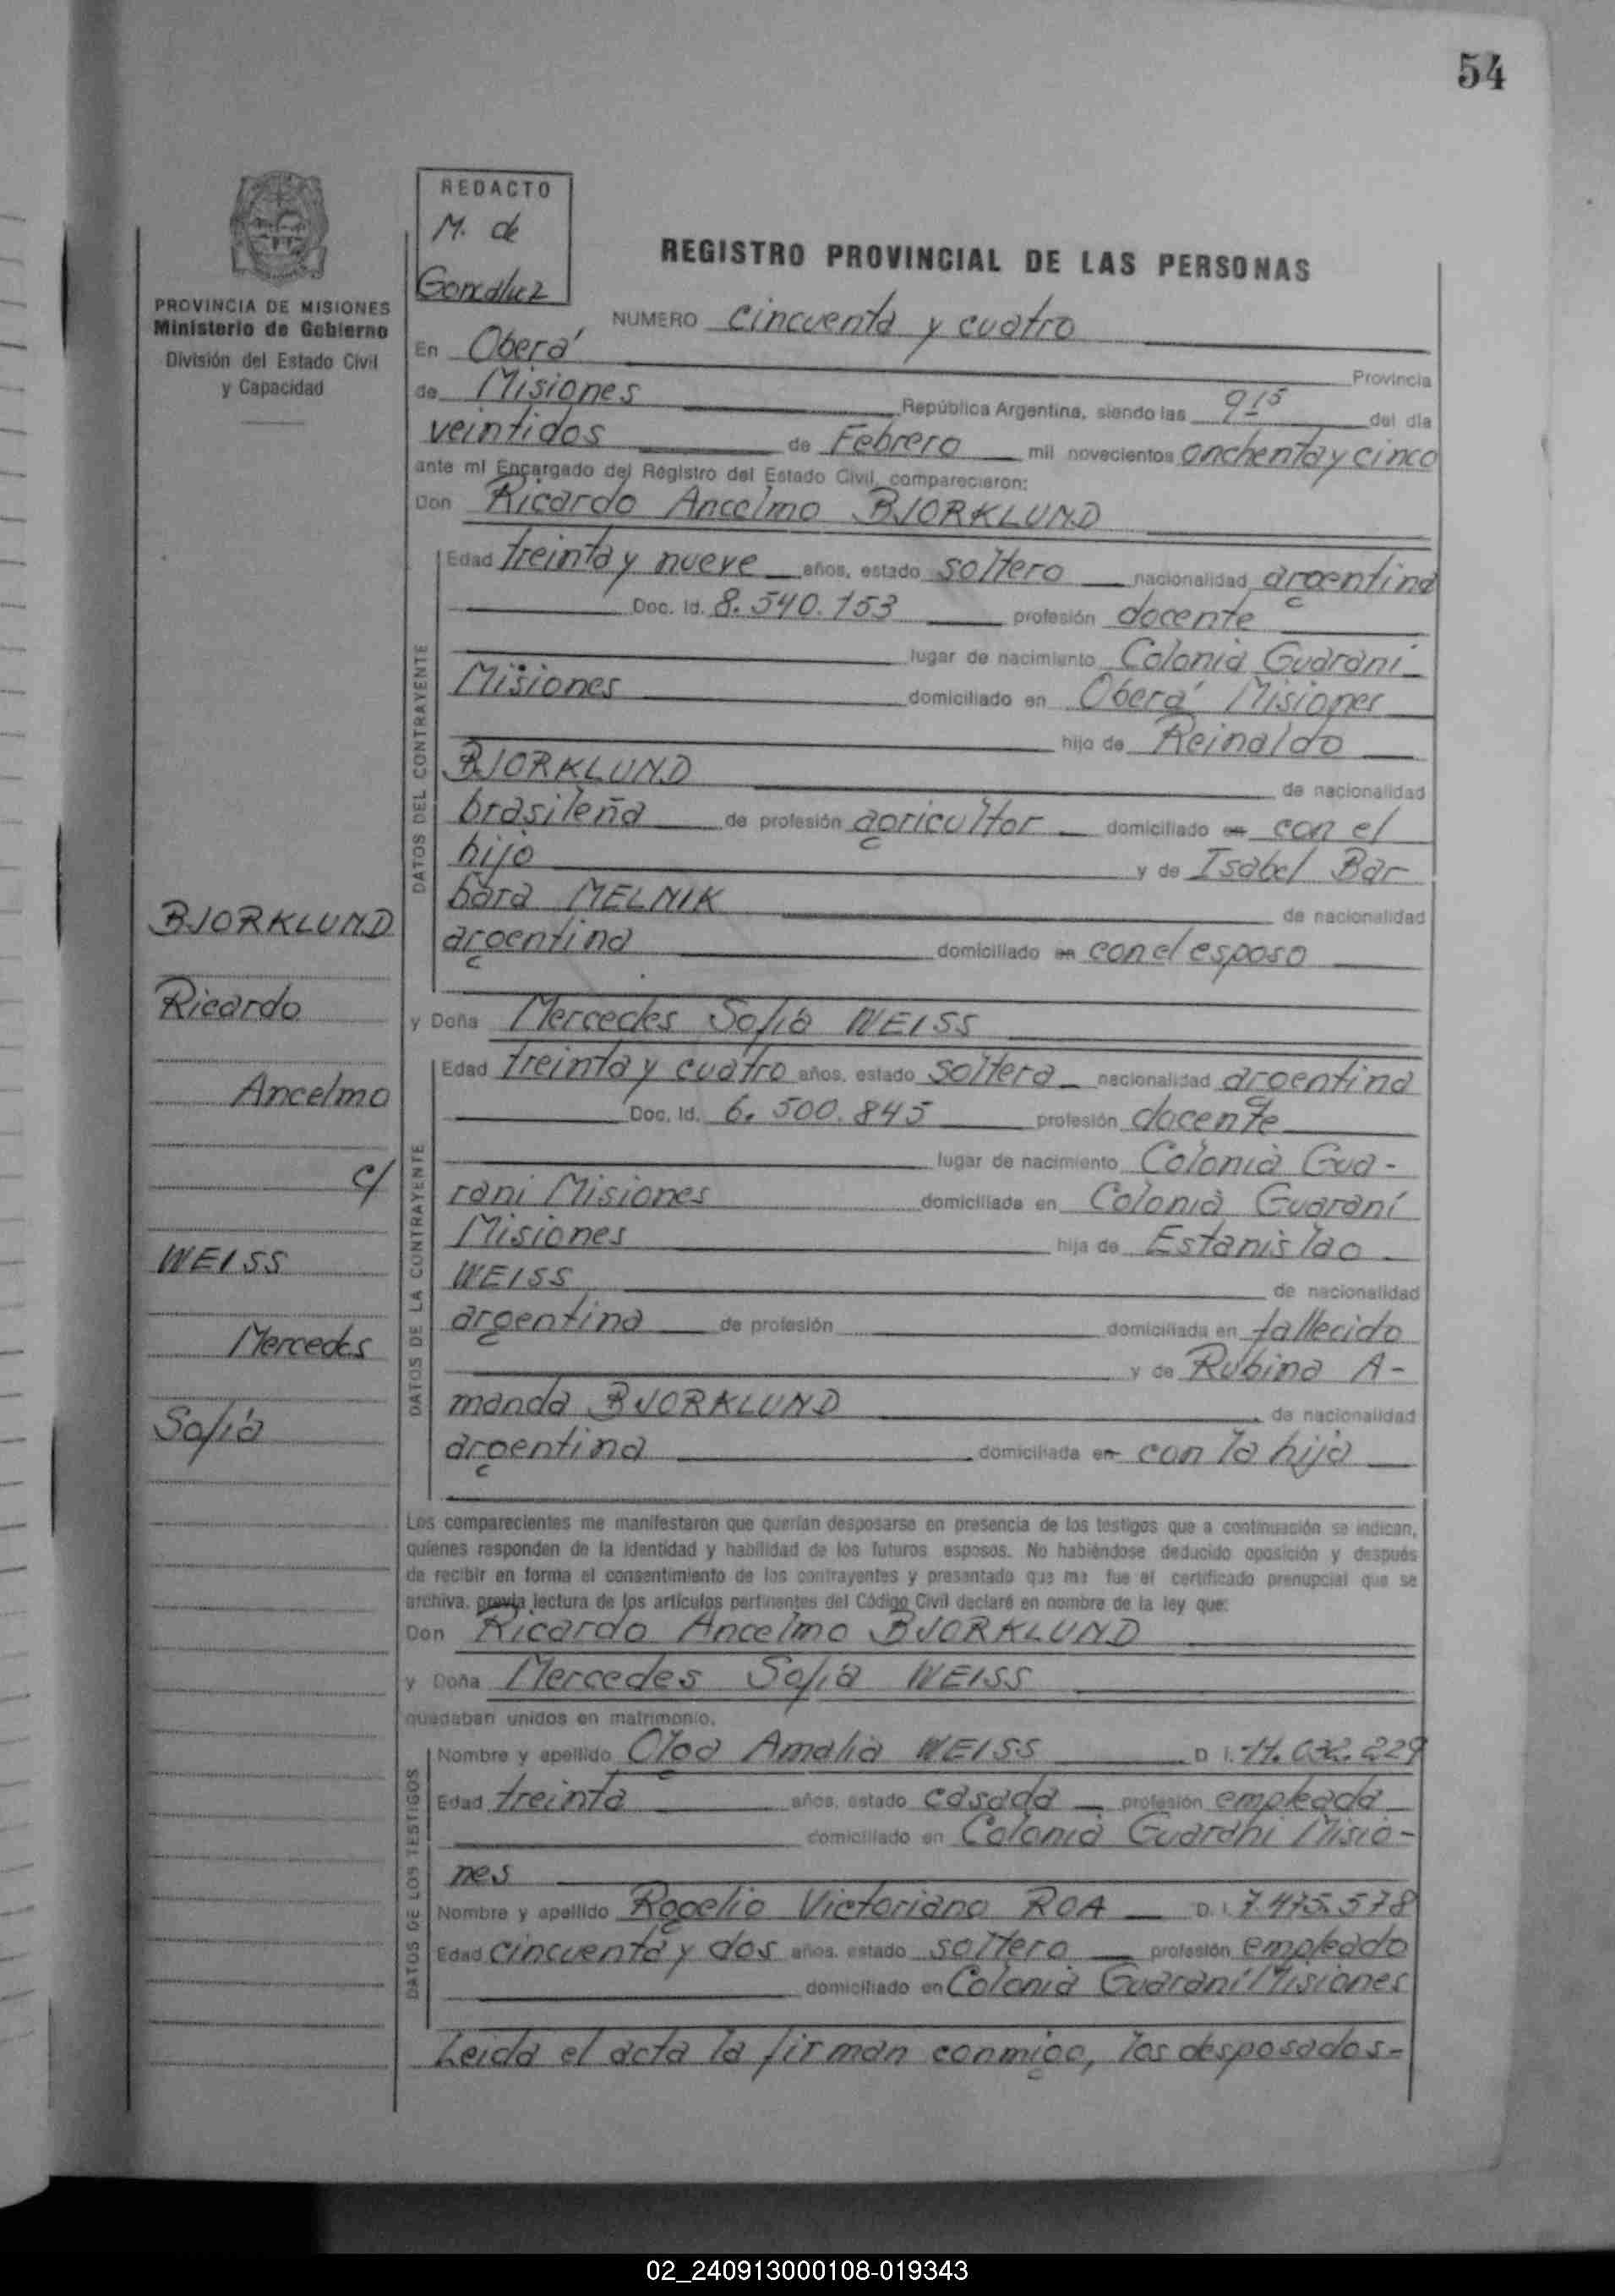 54
REDACTO
M. de
Gonzalez
REGISTRO PROVINCIAL DE LAS PERSONAS
PROVINCIA DE MISIONES
Ministerio de Gobierno
División del Estado Civil
y Capacidad
NUMERO cincuenta y cuatro
En Oberá
Provincia
de Misiones República Argentina, siendo las 9 15 del día
veintidos de Febrero mil novecientos onchenta y cinco
ante mí Encargado del Registro del Estado Civil, comparecieron:
Don Ricardo Ancelmo BJORKLUND
DATOS DEL CONTRAYENTE
Edad treinta y nueve años, estado soltero nacionalidad argentina
Doc. Id. 8.540.153 profesión docente
lugar de nacimiento Colonia Guaraní
Misiones domiciliado en Oberá Misiones
hijo de Reinaldo
BJORKLUND de nacionalidad
brasileña de profesión agricultor domiciliado en con el
hijo y de Isabel Bar
bara MELNIK de nacionalidad
argentina domiciliado en con el esposo
y Doña Mercedes Sofía WEISS
DATOS DE LA CONTRAYENTE
Edad treinta y cuatro años, estado soltera nacionalidad argentina
Doc. Id. 6.500.845 profesión docente
lugar de nacimiento Colonia Gua-
rani Misiones domiciliada en Colonia Guaraní
Misiones hija de Estanislao
WEISS de nacionalidad
argentina de profesión domiciliada en fallecido
y de Rubina A-
manda BJORKLUND de nacionalidad
argentina domiciliada en con la hija
BJORKLUND
Ricardo
Ancelmo
c/
WEISS
Mercedes
Sofía
Los comparecientes me manifestaron que querían desposarse en presencia de los testigos que a continuación se indican,
quienes responden de la identidad y habilidad de los futuros esposos. No habiéndose deducido oposición y después
de recibir en forma el consentimiento de los contrayentes y presentado que me fue el certificado prenupcial que se
archiva, previa lectura de los artículos pertinentes del Código Civil declaré en nombre de la ley que:
Don Ricardo Ancelmo BJORKLUND
y Doña Mercedes Sofía WEISS
quedaban unidos en matrimonio.
DATOS DE LOS TESTIGOS
Nombre y apellido Olga Amalia WEISS D. I. 11.032.229
Edad treinta años, estado casada profesión empleada
domiciliado en Colonia Guaraní Misio-
nes
Nombre y apellido Rogelio Victoriano ROA D. I. 7.475.578
Edad cincuenta y dos años, estado soltero profesión empleado
domiciliado en Colonia Guaraní Misiones
Leida el acta la firman conmigo, los desposados-
02_240913000108-019343